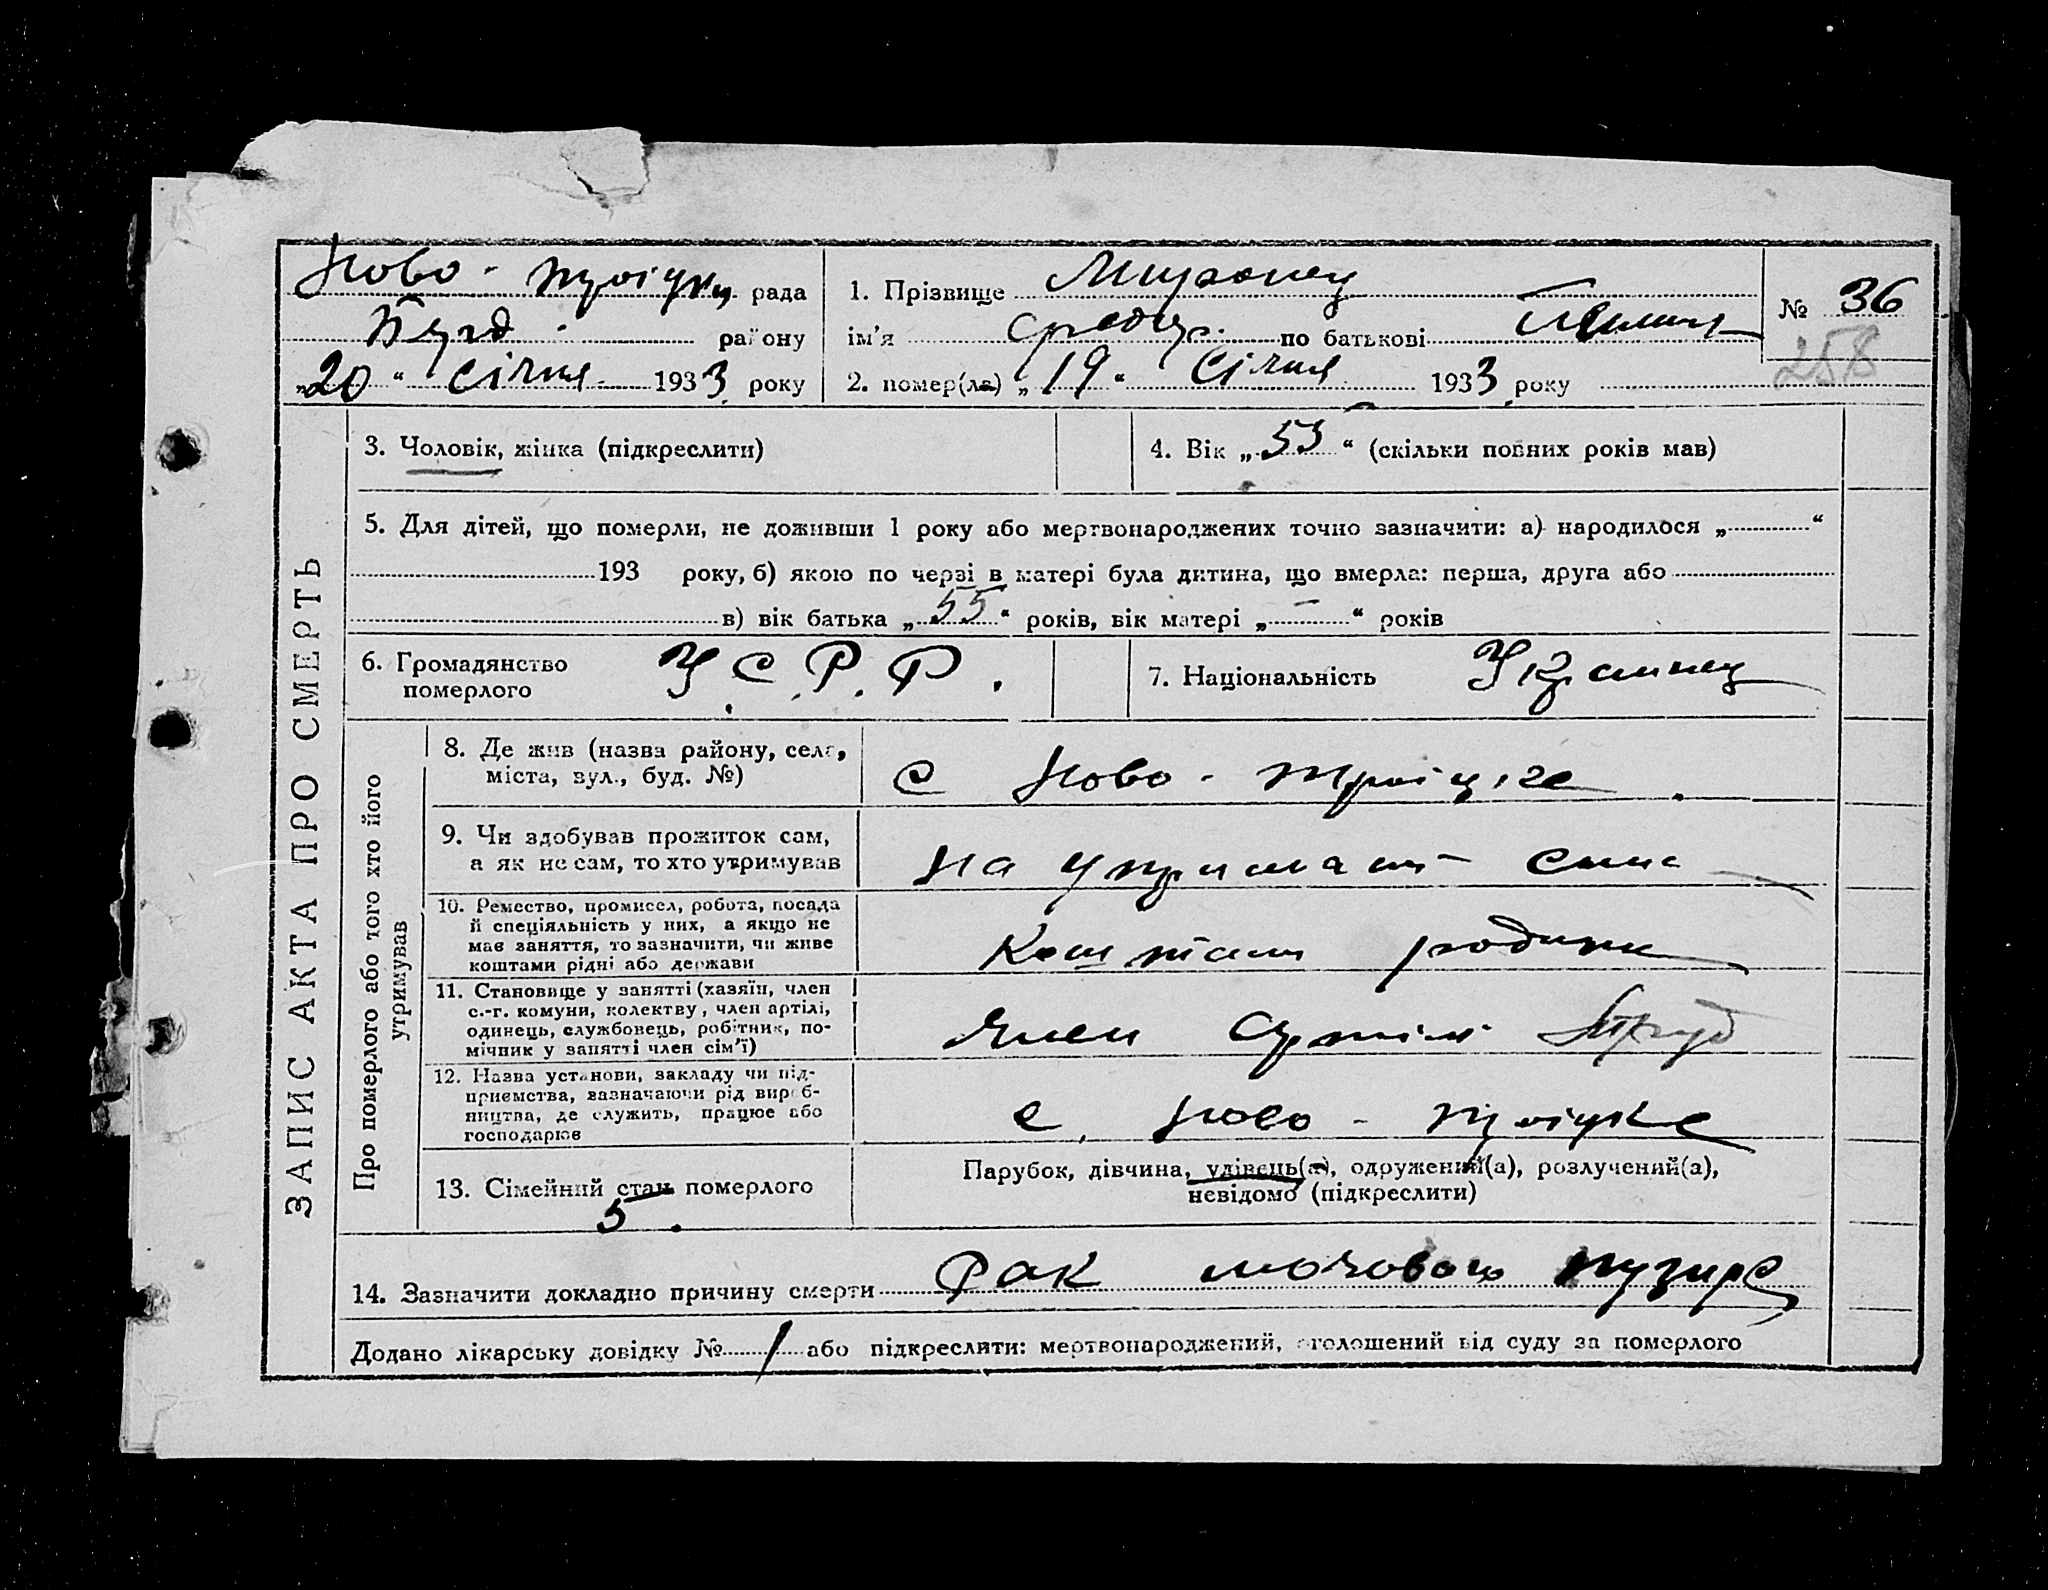 Ново-троіцьк рада
району
„20“ січня 1933 року
1. Прізвище Миронец
ім'я по батькові
2. помер(ла) „19“ Січня 1933 року
№ 36
258
ЗАПИС АКТА ПРО СМЕРТЬ
3. Чоловік, жінка (підкреслити)
4. Вік „55“ (скільки повних років мав)
5. Для дітей, що померли, не доживши 1 року або мертвонароджених точно зазначити: а) народилося „ “
193 року, б) якою по черзі в матері була дитина, що вмерла: перша, друга або
в) вік батька „55“ років, вік матері „–“ років
6. Громадянство
померлого
У.С.Р.Р.
7. Національність Украинец
Про померлого або того хто його
утримував
8. Де жив (назва району, села,
міста, вул., буд. №)
с Ново-троіцке
9. Чи здобував прожиток сам,
а як не сам, то хто утримував
на утримані сина
10. Ремество, промисел, робота, посада
й спеціяльність у них, а якщо не
має заняття, то зазначити, чи живе
коштами рідні або держави
Коштами родини
11. Становище у занятті (хазяїн, член
с.-г. комуни, колективу, член артілі,
одинець, службовець, робітник, по-
мічник у занятті член сім'ї)
член Артілі Труд
12. Назва установи, закладу чи під-
приємства, зазначаючи рід вироб-
ництва, де служить, працює або
господарює
с. Ново-троіцке
13. Сімейний стан померлого
5.
Парубок, дівчина, удівець(а), одружений(а), розлучений(а),
невідомо (підкреслити)
14. Зазначити докладно причину смерти Рак мочового пузиря
Додано лікарську довідку № / або підкреслити: мертвонароджений, оголошений від суду за померлого